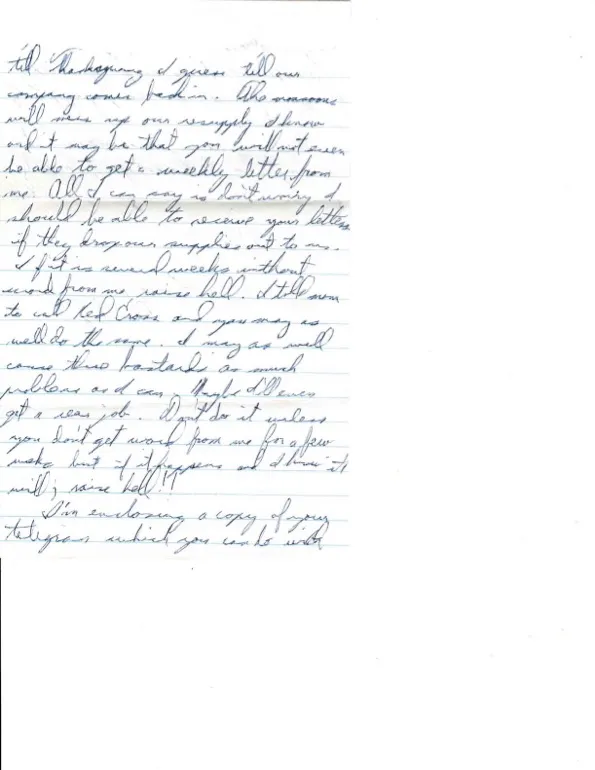 till Thanksgiving I guess till our
company comes back in. The monsoons
will mess up our resupply I know
and it may be that you will not even
be able to get a weekly letter from
me. All I can say is don't worry I
should be able to receive your letters
if they drop our supplies out to us.
If it is several weeks without
word from me, raise hell. I told mom
to call Red Cross and you may as
well do the same. I may as well
cause these bastards as much
problems as I can. Maybe I'll even
get a rear job. Don't do it unless
you don't get word from me for a few
weeks but if it happens and I know it
will, raise hell!!
I'm enclosing a copy of your
telegram which you can do with